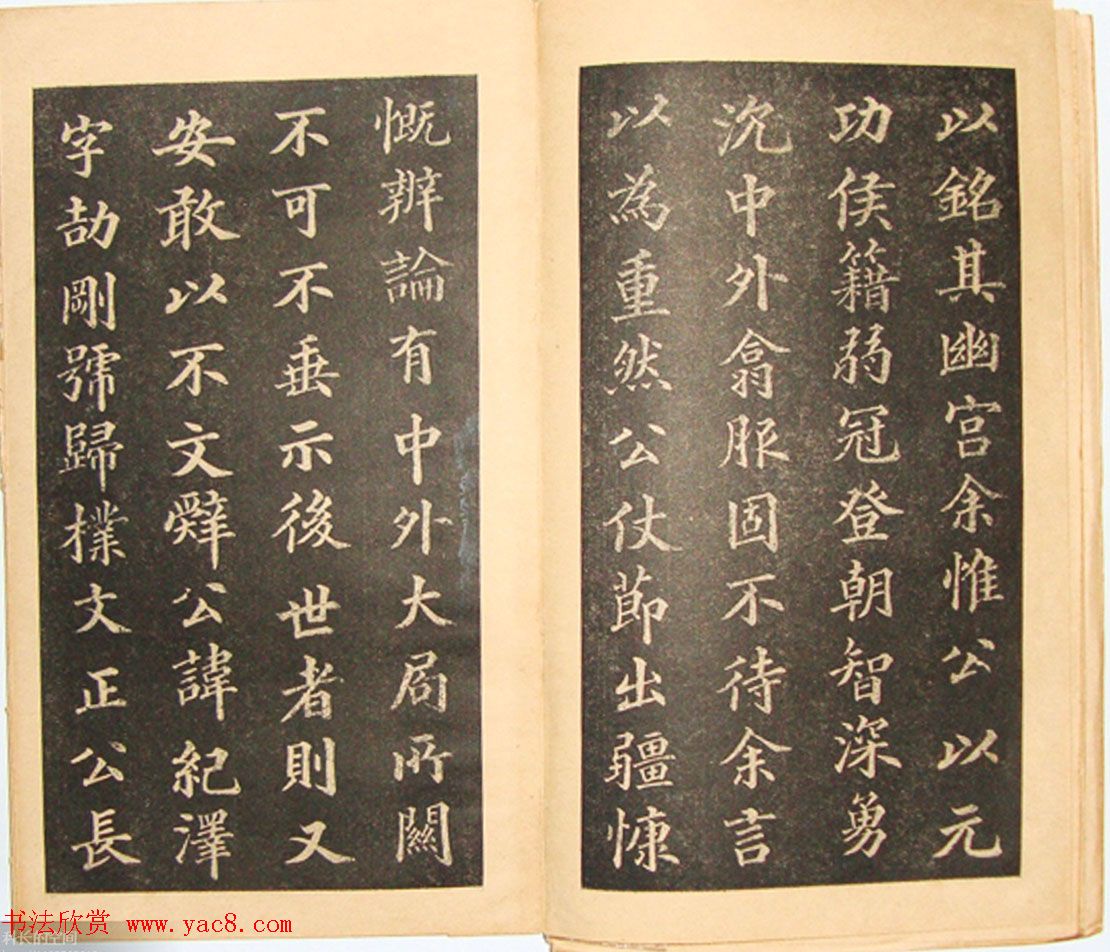 以銘其幽宮余惟公以元
功侯籍弱冠登朝智深勇
沉中外翕服固不待余言
以為重然公仗節出疆慷
慨辦論有中外大局所關
不可不垂示後世者則又
安敢以不文辭公諱紀澤
字劼剛號歸樸文正公長
书法欣赏 www.yac8.com
科长的空间